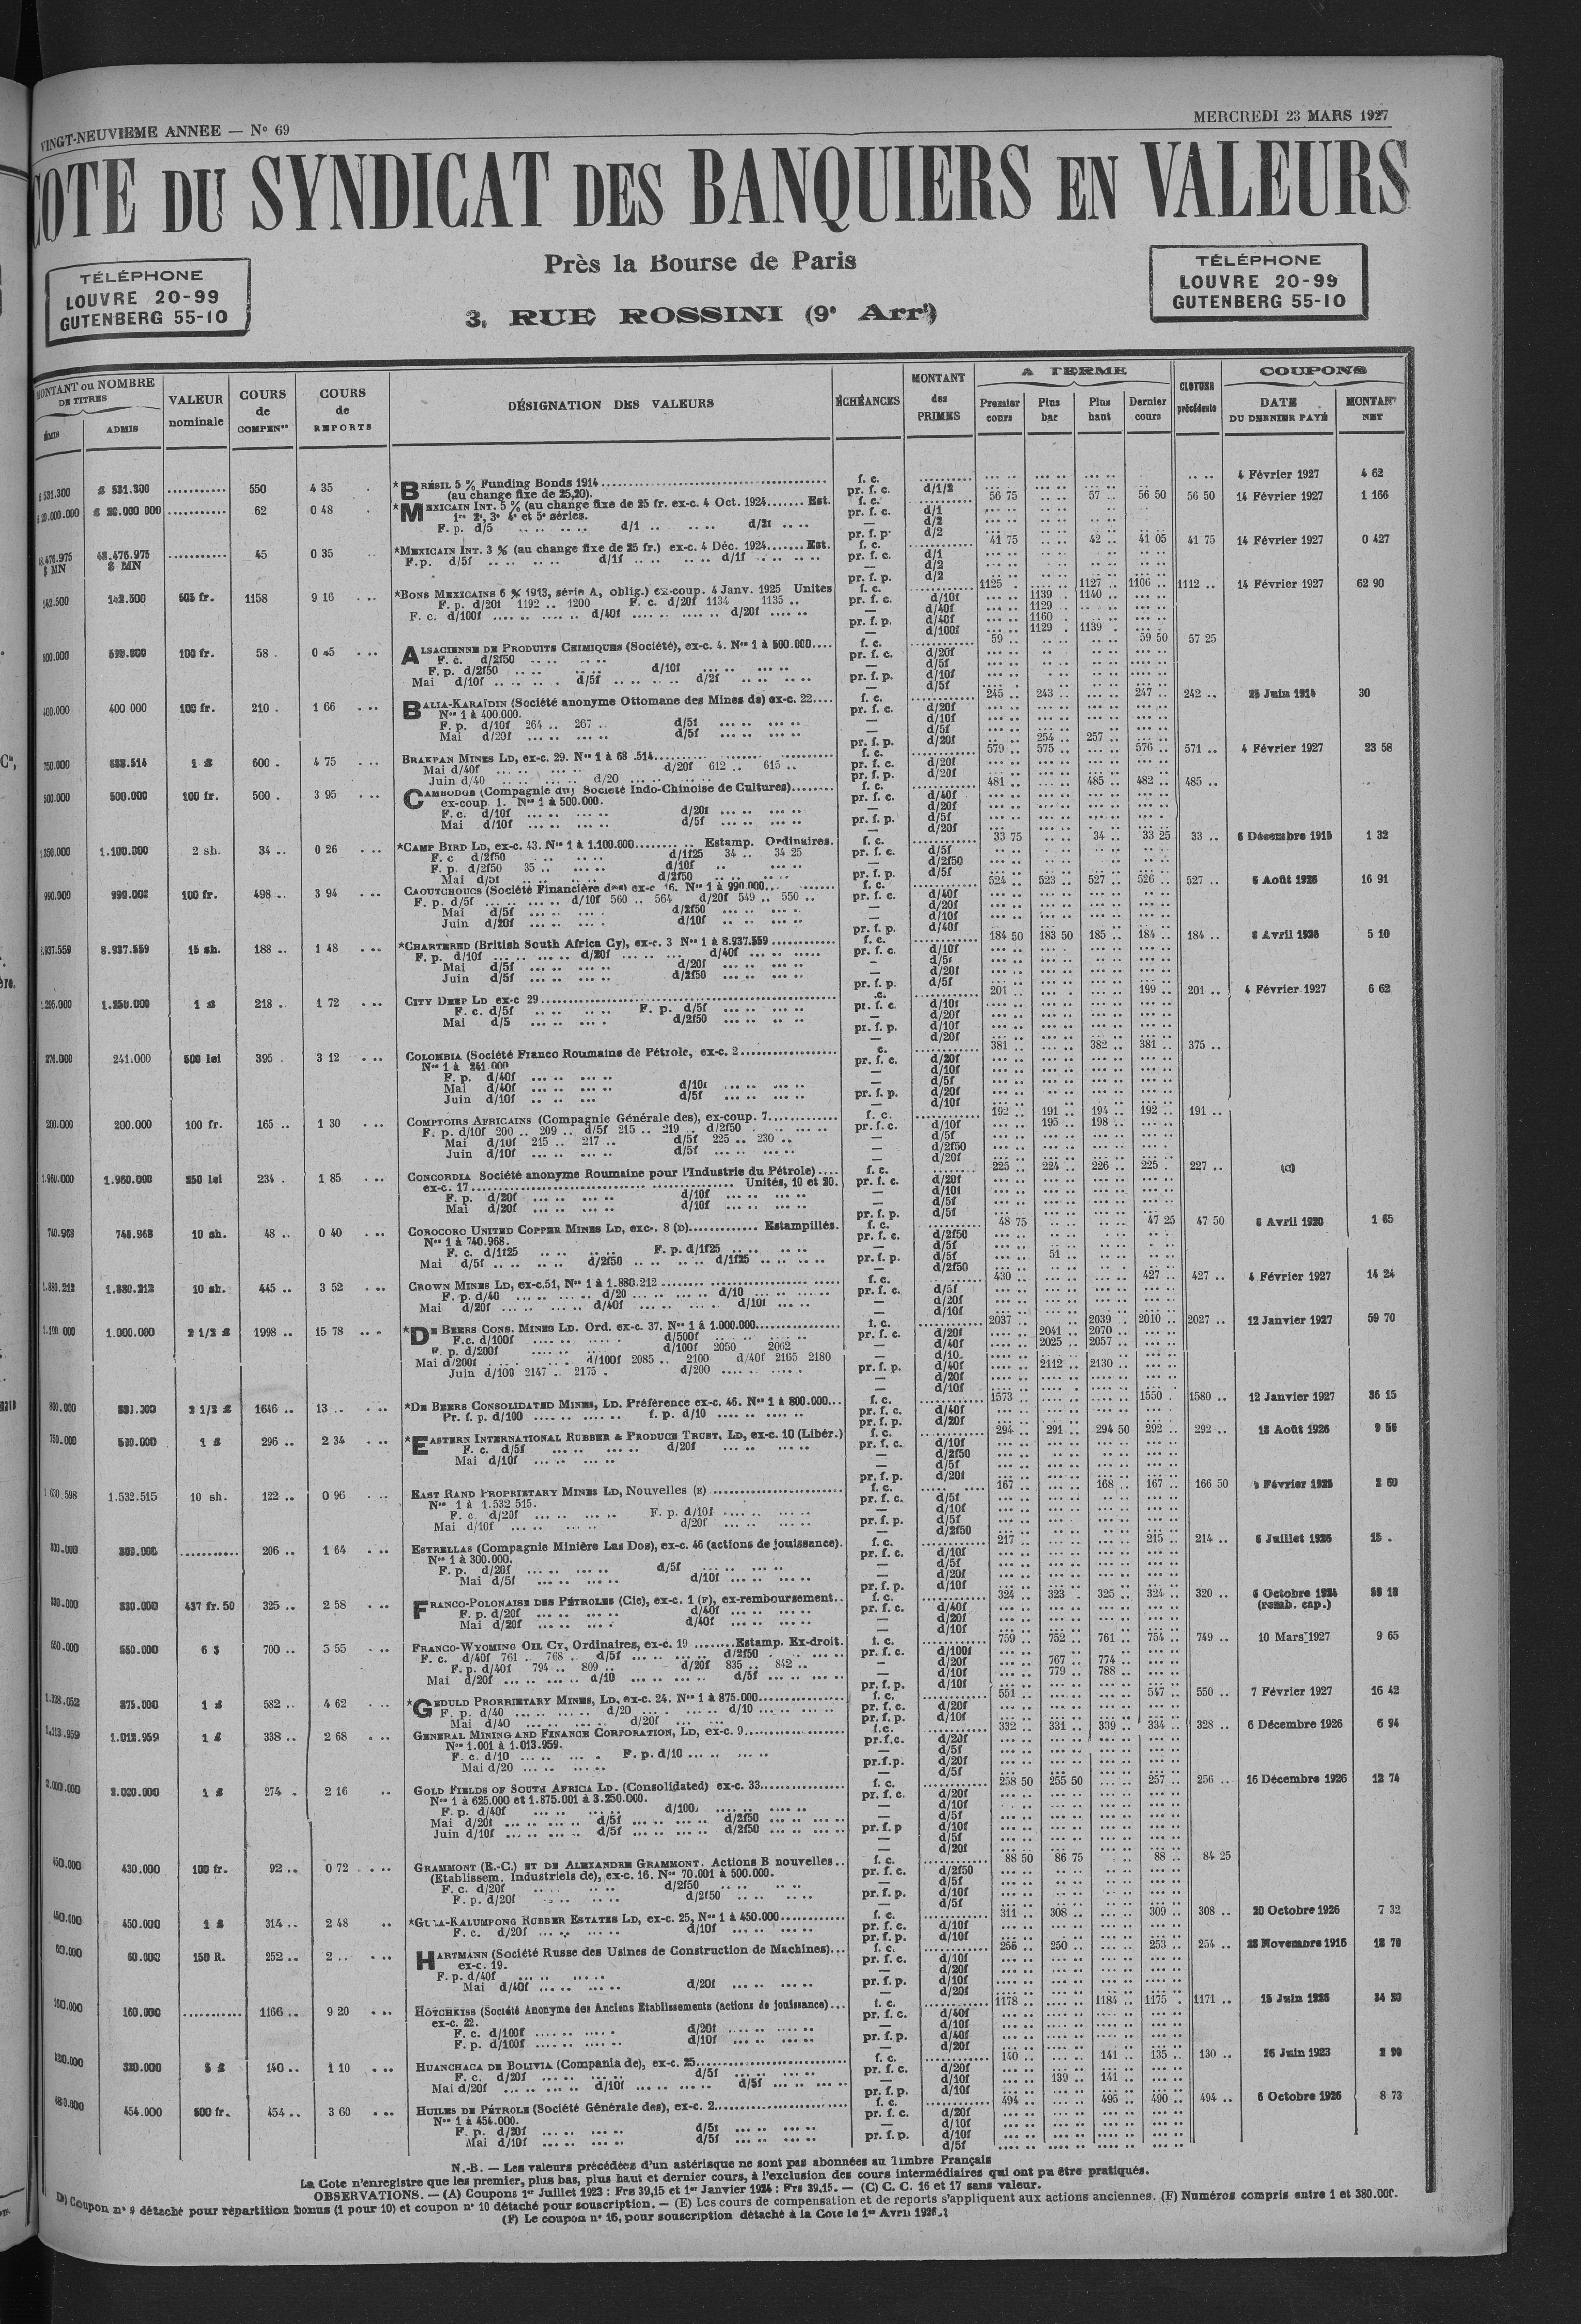 VINGT-NEUVIEME ANNEE — N° 69
MERCREDI 23 MARS 1927
COTE DU SYNDICAT DES BANQUIERS EN VALEURS
TÉLÉPHONE
LOUVRE 20-99
GUTENBERG 55-10
Près la Bourse de Paris
3, RUE ROSSINI (9e Arrt)
TÉLÉPHONE
LOUVRE 20-99
GUTENBERG 55-10
MONTANT ou NOMBRE DE TITRES
ÉMIS ADMIS
VALEUR nominale
COURS de COMPENon
COURS de REPORTS
DÉSIGNATION DES VALEURS
ÉCHÉANCES
MONTANT des PRIMES
A TERME
Premier cours
Plus bas
Plus haut
Dernier cours
CLOTURE précédente
COUPONS
DATE DU DERNIER PAYÉ
MONTANT NET
531.300 550 4 35 *BRÉSIL 5 % Funding Bonds 1914 f. c. 4 Février 1927 4 62
(au change fixe de 25,20). pr. f. c. d/1/2
62 0 48 *MEXICAIN INT. 5 % (au change fixe de 25 fr. ex-c. 4 Oct. 1924 Est. f. c. 56 75 57 .. 56 50 56 50 14 Février 1927 1 166
1re 2e, 3e 4e et 5e séries. pr. f. c. d/1
F. p. d/5 d/1 d/2f — d/2
pr. f. p. d/2
48.476.975 $ MN 45 0 35 *MEXICAIN INT. 3 % (au change fixe de 25 fr.) ex-c. 4 Déc. 1924 Est. f. c. 41 75 42 .. 41 05 41 75 14 Février 1927 0 427
F.p. d/5f d/1f d/1f pr. f. c. d/1
— d/2
pr. f. p. d/2
142.500 1158 9 16 *BONS MEXICAINS 6 % 1913, série A, oblig.) ex-coup. 4 Janv. 1925 Unites f. c. 1125 1127 .. 1106 .. 1112 .. 14 Février 1927 62 90
F. p. d/20f 1192 .. 1200 F. c. d/20f 1134 1135 .. pr. f. c. d/10f 1139 1140
F. c. d/100f d/40f d/20f — d/40f 1129
pr. f. p. d/40f 1160
— d/100f 1129 1139
500.000 100 fr. 58 0 45 ALSACIENNE DE PRODUITS CHIMIQUES (Société), ex-c. 4. Nos 1 à 500.000 f. c. 59 .. 59 50 57 25
F. c. d/2f50 pr. f. c. d/20f
F. p. d/2f50 d/10f — d/5f
Mai d/10f d/5f d/2f pr. f. p. d/10f
— d/5f
400.000 400 000 100 fr. 210 1 66 BALIA-KARAÏDIN (Société anonyme Ottomane des Mines de) ex-c. 22 f. c. 245 .. 243 .. 247 .. 242 .. 25 Juin 1914 30
Nos 1 à 400.000. pr. f. c. d/20f
F. p. d/10f 264 .. 267 .. d/5f — d/10f
Mai d/20f d/5f — d/5f
pr. f. p. d/20f 254 .. 257 ..
750.000 688.514 1 £ 600 4 75 BRAKPAN MINES LD, ex-c. 29. f. c. 579 .. 575 .. 576 .. 571 .. 4 Février 1927 23 58
Mai d/40f d/20f 612 .. 615 .. pr. f. c. d/20f
Juin d/40 d/20 pr. f. p. d/20f
500.000 500.000 100 fr. 500 3 95 CAMBODGE (Compagnie du) Société Indo-Chinoise de Cultures) f. c. 481 .. 485 .. 482 .. 485 ..
ex-coup 1. Nos 1 à 500.000. pr. f. c. d/40f
F. c. d/10f d/20f — d/20f
Mai d/10f d/5f pr. f. p. d/5f
— d/20f
1.350.000 1.100.000 2 sh. 34 .. 0 26 *CAMP BIRD LD, ex-c. 43. Nos 1 à 1.100.000 Estamp. Ordinaires. f. c. 33 75 34 .. 33 25 33 .. 6 Décembre 1915 1 32
F. c d/2f50 d/1f25 34 .. 34 25 pr. f. c. d/5f
F. p. d/2f50 35 .. d/10f — d/2f50
Mai d/5f d/2f50 pr. f. p. d/5f
990.000 990.000 100 fr. 498 .. 3 94 CAOUTCHOUCS (Société Financière des) ex-c 16. Nos 1 à 990.000 f. c. 524 .. 523 .. 527 .. 526 .. 527 .. 6 Août 1926 16 91
F. p. d/5f d/10f 560 .. 564 d/20f 549 .. 550 .. pr. f. c. d/40f
Mai d/5f d/2f50 — d/20f
Juin d/20f d/10f — d/10f
pr. f. p. d/40f
8.937.559 8.937.559 15 sh. 188 .. 1 48 *CHARTERED (British South Africa Cy), ex-c. 3 Nos 1 à 8.937.559 f. c. 184 50 183 50 185 .. 184 .. 184 .. 8 Avril 1926 5 10
F. p. d/10f d/20f d/40f pr. f. c. d/10f
Mai d/5f d/20f — d/5f
Juin d/5f d/2f50 — d/20f
pr. f. p. d/5f
1.250.000 1 £ 218 .. 1 72 CITY DEEP LD ex-c 29 201 .. 199 .. 201 .. 4 Février 1927 6 62
F. c. d/5f F. p. d/5f pr. f. c. d/10f
Mai d/5 d/2f50 — d/20f
pr. f. p. d/10f
— d/20f
241.000 500 lei 395 3 12 COLOMBIA (Société Franco Roumaine de Pétrole, ex-c. 2 381 .. 382 .. 381 .. 375 ..
Nos 1 à 241.000 pr. f. c. d/20f
F. p. d/40f — d/10f
Mai d/40f d/10f — d/5f
Juin d/10f d/5f pr. f. p. d/20f
— d/10f
200.000 200.000 100 fr. 165 .. 1 30 COMPTOIRS AFRICAINS (Compagnie Générale des), ex-coup. 7 f. c. 192 .. 191 .. 194 .. 192 .. 191 ..
F. p. d/10f 200 .. 209 .. d/5f 215 .. 219 .. d/2f50 pr. f. c. d/10f 195 .. 198 ..
Mai d/10f 215 .. 217 .. d/5f 225 .. 230 .. — d/5f
Juin d/10f d/5f — d/2f50
— d/20f
1.960.000 1.960.000 250 lei 234 1 85 CONCORDIA Société anonyme Roumaine pour l'Industrie du Pétrole) f. c. 225 .. 224 .. 226 .. 225 227 ..
ex-c. 17 Unités, 10 et 20. pr. f. c. d/20f
F. p. d/20f d/10f — d/10f
Mai d/20f d/10f — d/5f
pr. f. p. d/5f
740.968 740.968 10 sh. 48 .. 0 40 COROCORO UNITED COPPER MINES LD, exc-. 8 (D) Estampillés. f. c. 48 75 47 25 47 50 8 Avril 1920 1 65
Nos 1 à 740.968. pr. f. c. d/2f50
F. c. d/1f25 F. p. d/1f25 — d/5f
Mai d/5f d/2f50 d/1f25 pr. f. p. d/5f 51 ..
— d/2f50
1.880.212 1.880.212 10 sh. 445 .. 3 52 CROWN MINES LD, ex-c.51, Nos 1 à 1.880.212 f. c. 430 .. 427 .. 427 .. 4 Février 1927 14 24
F. p. d/40 d/20 d/10 pr. f. c. d/5f
Mai d/20f d/40f d/10f — d/20f
— d/10f
1.000.000 2 1/2 £ 1998 .. 15 78 *DE BEERS CONS. MINES LD. Ord. ex-c. 37. Nos 1 à 1.000.000 f. c. 2037 .. 2039 2010 .. 2027 .. 12 Janvier 1927 59 70
F.c. d/100f d/500f pr. f. c. d/20f 2041 .. 2070 ..
F. p. d/200f d/100f 2050 2062 — d/40f 2025 .. 2057 ..
Mai d/200f d/100f 2085 .. 2100 d/40f 2165 2180 — d/10
Juin d/100 2147 .. 2175 d/200 pr. f. p. d/40f 2112 .. 2130 ..
— d/20f
— d/10f
800.000 2 1/2 £ 1646 .. 13 .. *DE BEERS CONSOLIDATED MINES, LD. Préférence ex-c. 46. Nos 1 à 800.000 f. c. 1573 1550 1580 .. 12 Janvier 1927 36 15
Pr. f. p. d/100 f. p. d/10 pr. f. c. d/40f
pr. f. p. d/20f
750.000 1 £ 296 .. 2 34 *EASTERN INTERNATIONAL RUBBER & PRODUCE TRUST, LD, ex-c. 10 (Libér.) f. c. 294 .. 291 .. 294 50 292 .. 292 .. 18 Août 1926
F. c. d/5f d/20f pr. f. c. d/10f
Mai d/10f — d/2f50
— d/5f
pr. f. p. d/20f
1.532.515 10 sh. 122 .. 0 96 EAST RAND PROPRIETARY MINES LD, Nouvelles (E) f. c. 167 .. 168 .. 167 .. 166 50
Nos 1 à 1.532 515. pr. f. c. d/5f
F. c. d/20f F. p. d/10f — d/10f
Mai d/10f d/20f pr. f. p. d/5f
— d/2f50
206 .. 1 64 ESTRELLAS (Compagnie Minière Las Dos), ex-c. 46 (actions de jouissance). f. c. 217 .. 215 .. 214 .. 6 Juillet 1926 15 .
Nos 1 à 300.000. pr. f. c. d/10f
F. p. d/20f d/5f — d/5f
Mai d/5f d/10f — d/20f
pr. f. p. d/10f
330.000 437 fr. 50 325 .. 2 58 FRANCO-POLONAISE DES PÉTROLES (Cie), ex-c. 1 (F), ex-remboursement f. c. 324 .. 323 325 .. 324 .. 320 .. 6 Octobre 1924
(remb. cap.)
F. p. d/20f d/40f pr. f. c. d/40f
Mai d/20f d/40f — d/20f
— d/10f
550.000 6 $ 700 .. 5 55 FRANCO-WYOMING OIL CY, Ordinaires, ex-c. 19 Estamp. Ex-droit. f. c. 759 .. 752 .. 761 .. 754 .. 749 .. 10 Mars 1927 9 65
F. c. d/40f 761 .. 768 d/5f d/2f50 pr. f. c. d/100f
F. p. d/40f 794 .. 809 .. d/20f 835 .. 842 .. — d/20f 767 .. 774 ..
Mai d/20f d/10 d/5f — d/10f 779 .. 788 ..
pr. f. p. d/10f
875.000 1 £ 582 .. 4 62 *GEDULD PRORRIETARY MINES, LD, ex-c. 24. Nos 1 à 875.000 f. c. 551 .. 547 .. 550 .. 7 Février 1927 16 42
F. p. d/40 d/20 d/10 pr. f. c. d/20f
Mai d/40 d/20f pr. f. p. d/10f
1.013.959 1 £ 338 .. 2 68 GENERAL MINING AND FINANCE CORPORATION, LD, ex-c. 9 f.c. 332 .. 331 .. 339 .. 334 .. 328 .. 6 Décembre 1926 6 94
Nos 1.001 à 1.013.959. pr.f.c. d/20f
F. c. d/10 F. p. d/10 — d/5f
Mai d/20 pr.f.p. d/20f
— d/5f
2.000.000 2.000.000 1 £ 274 2 16 GOLD FIELDS OF SOUTH AFRICA LD. (Consolidated) ex-c. 33 f. c. 258 50 255 50 257 .. 256 .. 16 Décembre 1926 12 74
Nos 1 à 625.000 et 1.875.001 à 3.250.000. pr. f. c. d/20f
F. p. d/40f d/100 — d/10f
Mai d/20f d/5f d/2f50 — d/5f
Juin d/10f d/5f d/2f50 pr. f. p d/10f
— d/5f
— d/20f
430.000 100 fr. 92 .. 0 72 GRAMMONT (E.-C.) ET DE ALEXANDRE GRAMMONT. Actions B nouvelles f. c. 88 50 86 75 88 .. 84 25
(Etablissem. Industriels de), ex-c. 16. Nos 70.001 à 500.000. pr. f. c. d/2f50
F. c. d/20f d/2f50 — d/5f
F. p. d/20f d/2f50 pr. f. p. d/10f
— d/5f
450.000 450.000 1 £ 314 .. 2 48 *GULA-KALUMPONG RUBBER ESTATES LD, ex-c. 25, Nos 1 à 450.000 f. c. 311 .. 308 .. 309 .. 308 .. 20 Octobre 1926 7 32
F. c. d/20f d/10f pr. f. c. d/10f
pr. f. p. d/10f
60.000 60.000 150 R. 252 .. 2 .. HARTMANN (Société Russe des Usines de Construction de Machines) f. c. 250 .. 253 .. 254 .. 1916
ex-c. 19. pr. f. c. d/10f
F. p. d/40f — d/20f
Mai d/40f d/20f pr. f. p. d/10f
— d/20f
160.000 160.000 1166 .. 9 20 HOTCHKISS (Société Anonyme des Anciens Etablissements (actions de jouissance) f. c. 1178 .. 1184 .. 1175 1171 .. 15 Juin 1926
ex-c. 22. pr. f. c. d/40f
F. c. d/100f d/20f — d/10f
F. p. d/100f d/10f pr. f. p. d/40f
— d/20f
320.000 5 £ 140 .. 1 10 HUANCHACA DE BOLIVIA (Compania de), ex-c. 25 f. c. 140 .. 141 .. 135 .. 130 .. 26 Juin 1923
F. c. d/20f d/5f pr. f. c. d/20f
Mai d/20f d/10f d/5f — d/10f 139 .. 141 ..
pr. f. p. d/10f
454.000 500 fr. 454 .. 3 60 HUILES DE PÉTROLE (Société Générale des), ex-c. 2 f. c. 494 .. 495 .. 490 .. 494 .. 6 Octobre 1926 8 73
Nos 1 à 454.000. pr. f. c. d/20f
F. p. d/20f d/5f — d/10f
Mai d/10f d/5f pr. f. p. d/10f
d/5f
N.-B. — Les valeurs précédées d'un astérisque ne sont pas abonnées au Timbre Français
La Cote n'enregistre que les premier, plus bas, plus haut et dernier cours, à l'exclusion des cours intermédiaires qui ont pu être pratiqués.
OBSERVATIONS. — (A) Coupons 1er Juillet 1923 : Frs 39,15 et 1er Janvier 1924 : Frs 39.15. — (C) C. C. 16 et 17 sans valeur.
D) Coupon n° 9 détaché pour répartition bonus (1 pour 10) et coupon n° 10 détaché pour souscription. — (E) Les cours de compensation et de reports s'appliquent aux actions anciennes. (F) Numéros compris entre 1 et 380.000.
(F) Le coupon n° 16, pour souscription détaché à la Cote le 1er Avril 1926.